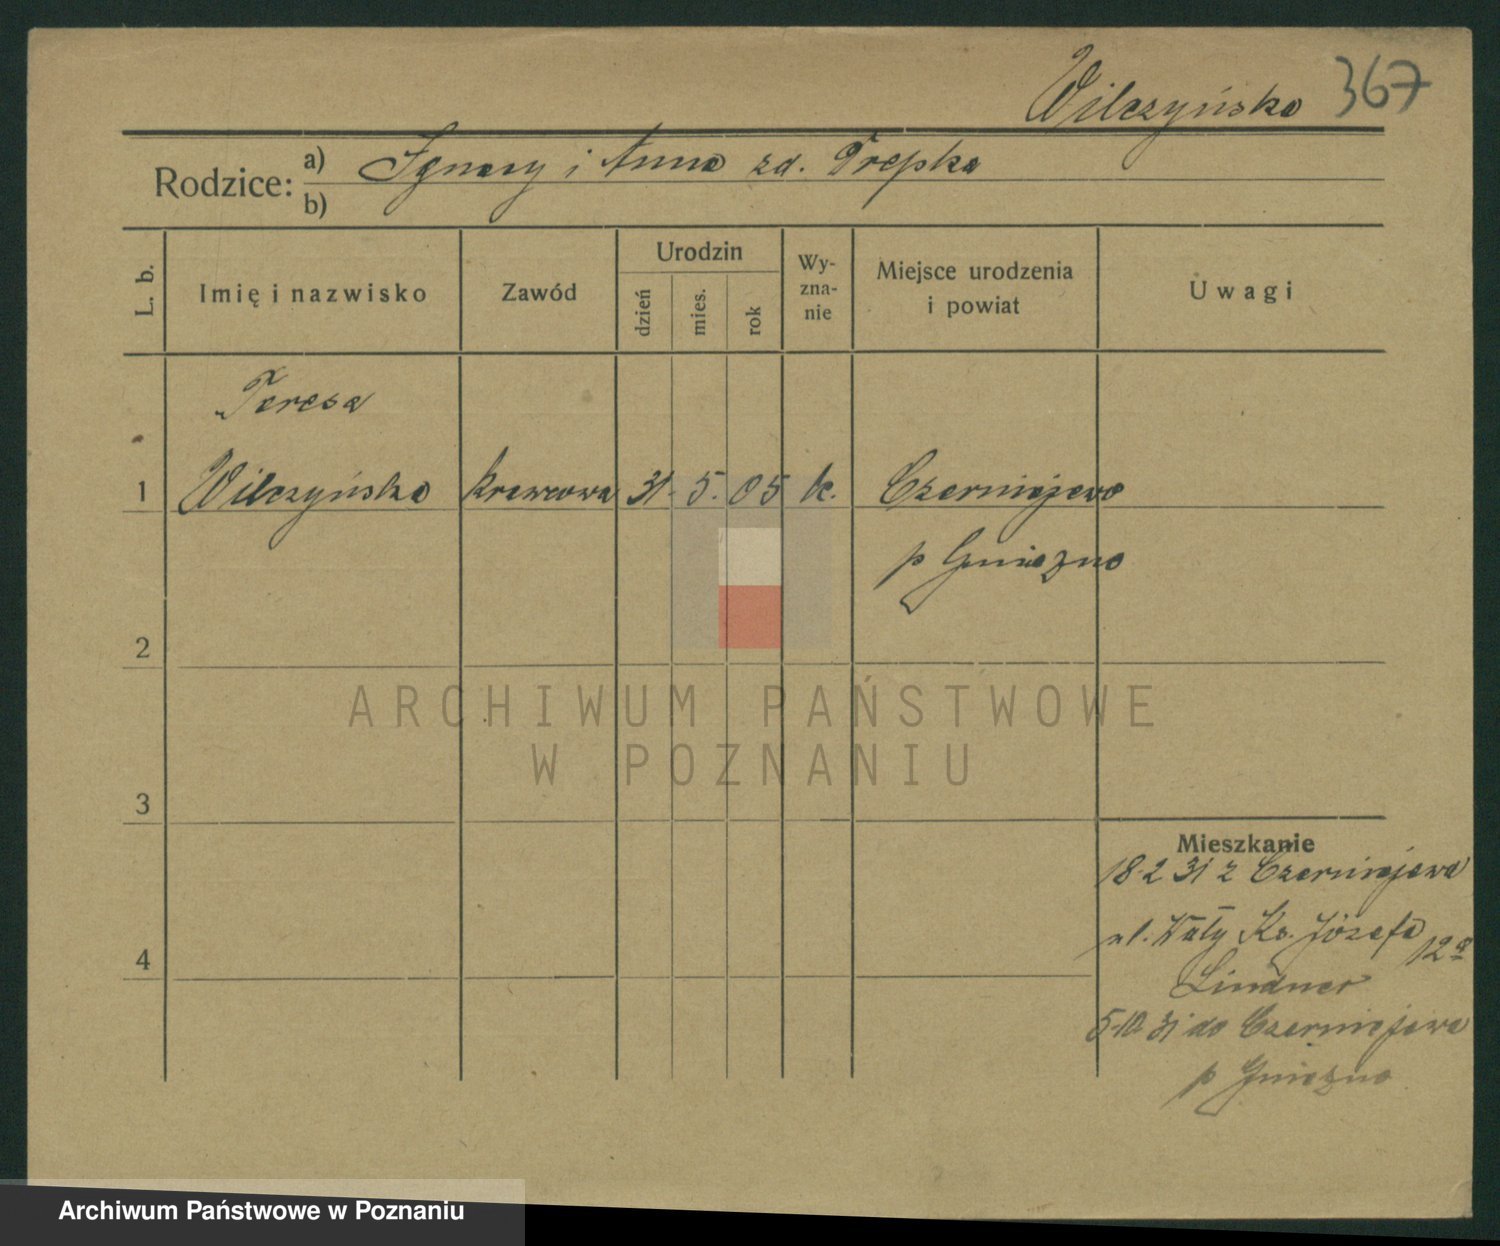 Wilczyńska 367
Rodzice: a) Ignacy i Anna zd. Trepka
b)
L. b.
Imię i nazwisko
Zawód
Urodzin
dzień
mies.
rok
Wy-
zna-
nie
Miejsce urodzenia
i powiat
Uwagi
Teresa
1 Wilczyńska krawcowa 31. 5. 05 k. Czerniejewo
p Gniezno
2
ARCHIWUM PAŃSTWOWE
W POZNANIU
3
Mieszkanie
18.2 31 z Czerniejewa
ul. Wały Ks. Józefa 12a
4
Lindner
5.10 31 do Czerniejewa
p Gniezno
Archiwum Państwowe w Poznaniu